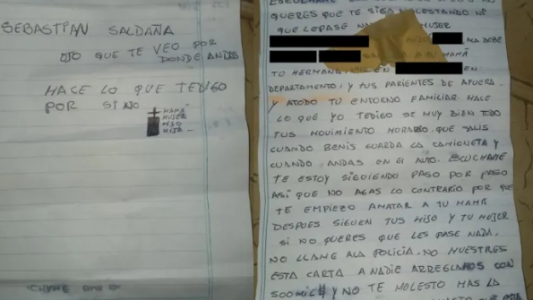 SEBASTIAN SALDAÑA
OJO QUE TE VEO POR
DONDE ANDAS
HACE LO QUE TEDIGO
POR SINO
MAMÁ
MUJER
HIJO
HIJA
QUERES QUE TE SIGA
QUE LEPASE
MUJER
DEBE
MAMÁ
TU HERMANA EN
DEPARTAMENTO; Y TUS PARIENTES DE AFUERA.
Y ATODO TU ENTORNO FAMILIAR HACE
LO QUE YO TEDIGO SE MUY BIEN TODO
TUS MOVIMIENTO HORARIO QUE SALIS
CUANDO BENIS GUARDA LA CAMIONETA Y
CUANDO ANDAS EN EL AUTO. ESCUCHAME
TE ESTOY SIGUIENDO PASO POR PASO
ASI QUE NO AGAS LO CONTRARIO POR QUE
TE EMPIEZO AMATAR A TU MAMÁ
DESPUES SIGUEN TUS HIJO Y TU MUJER
SI NO QUERES QUE LES PASE NADA.
NO LLAME ALA POLICIA. NO MUESTRES
ESTA CARTA A NADIE ARREGLAMOS CON
500MIL$ Y NO TE MOLESTO MAS LA